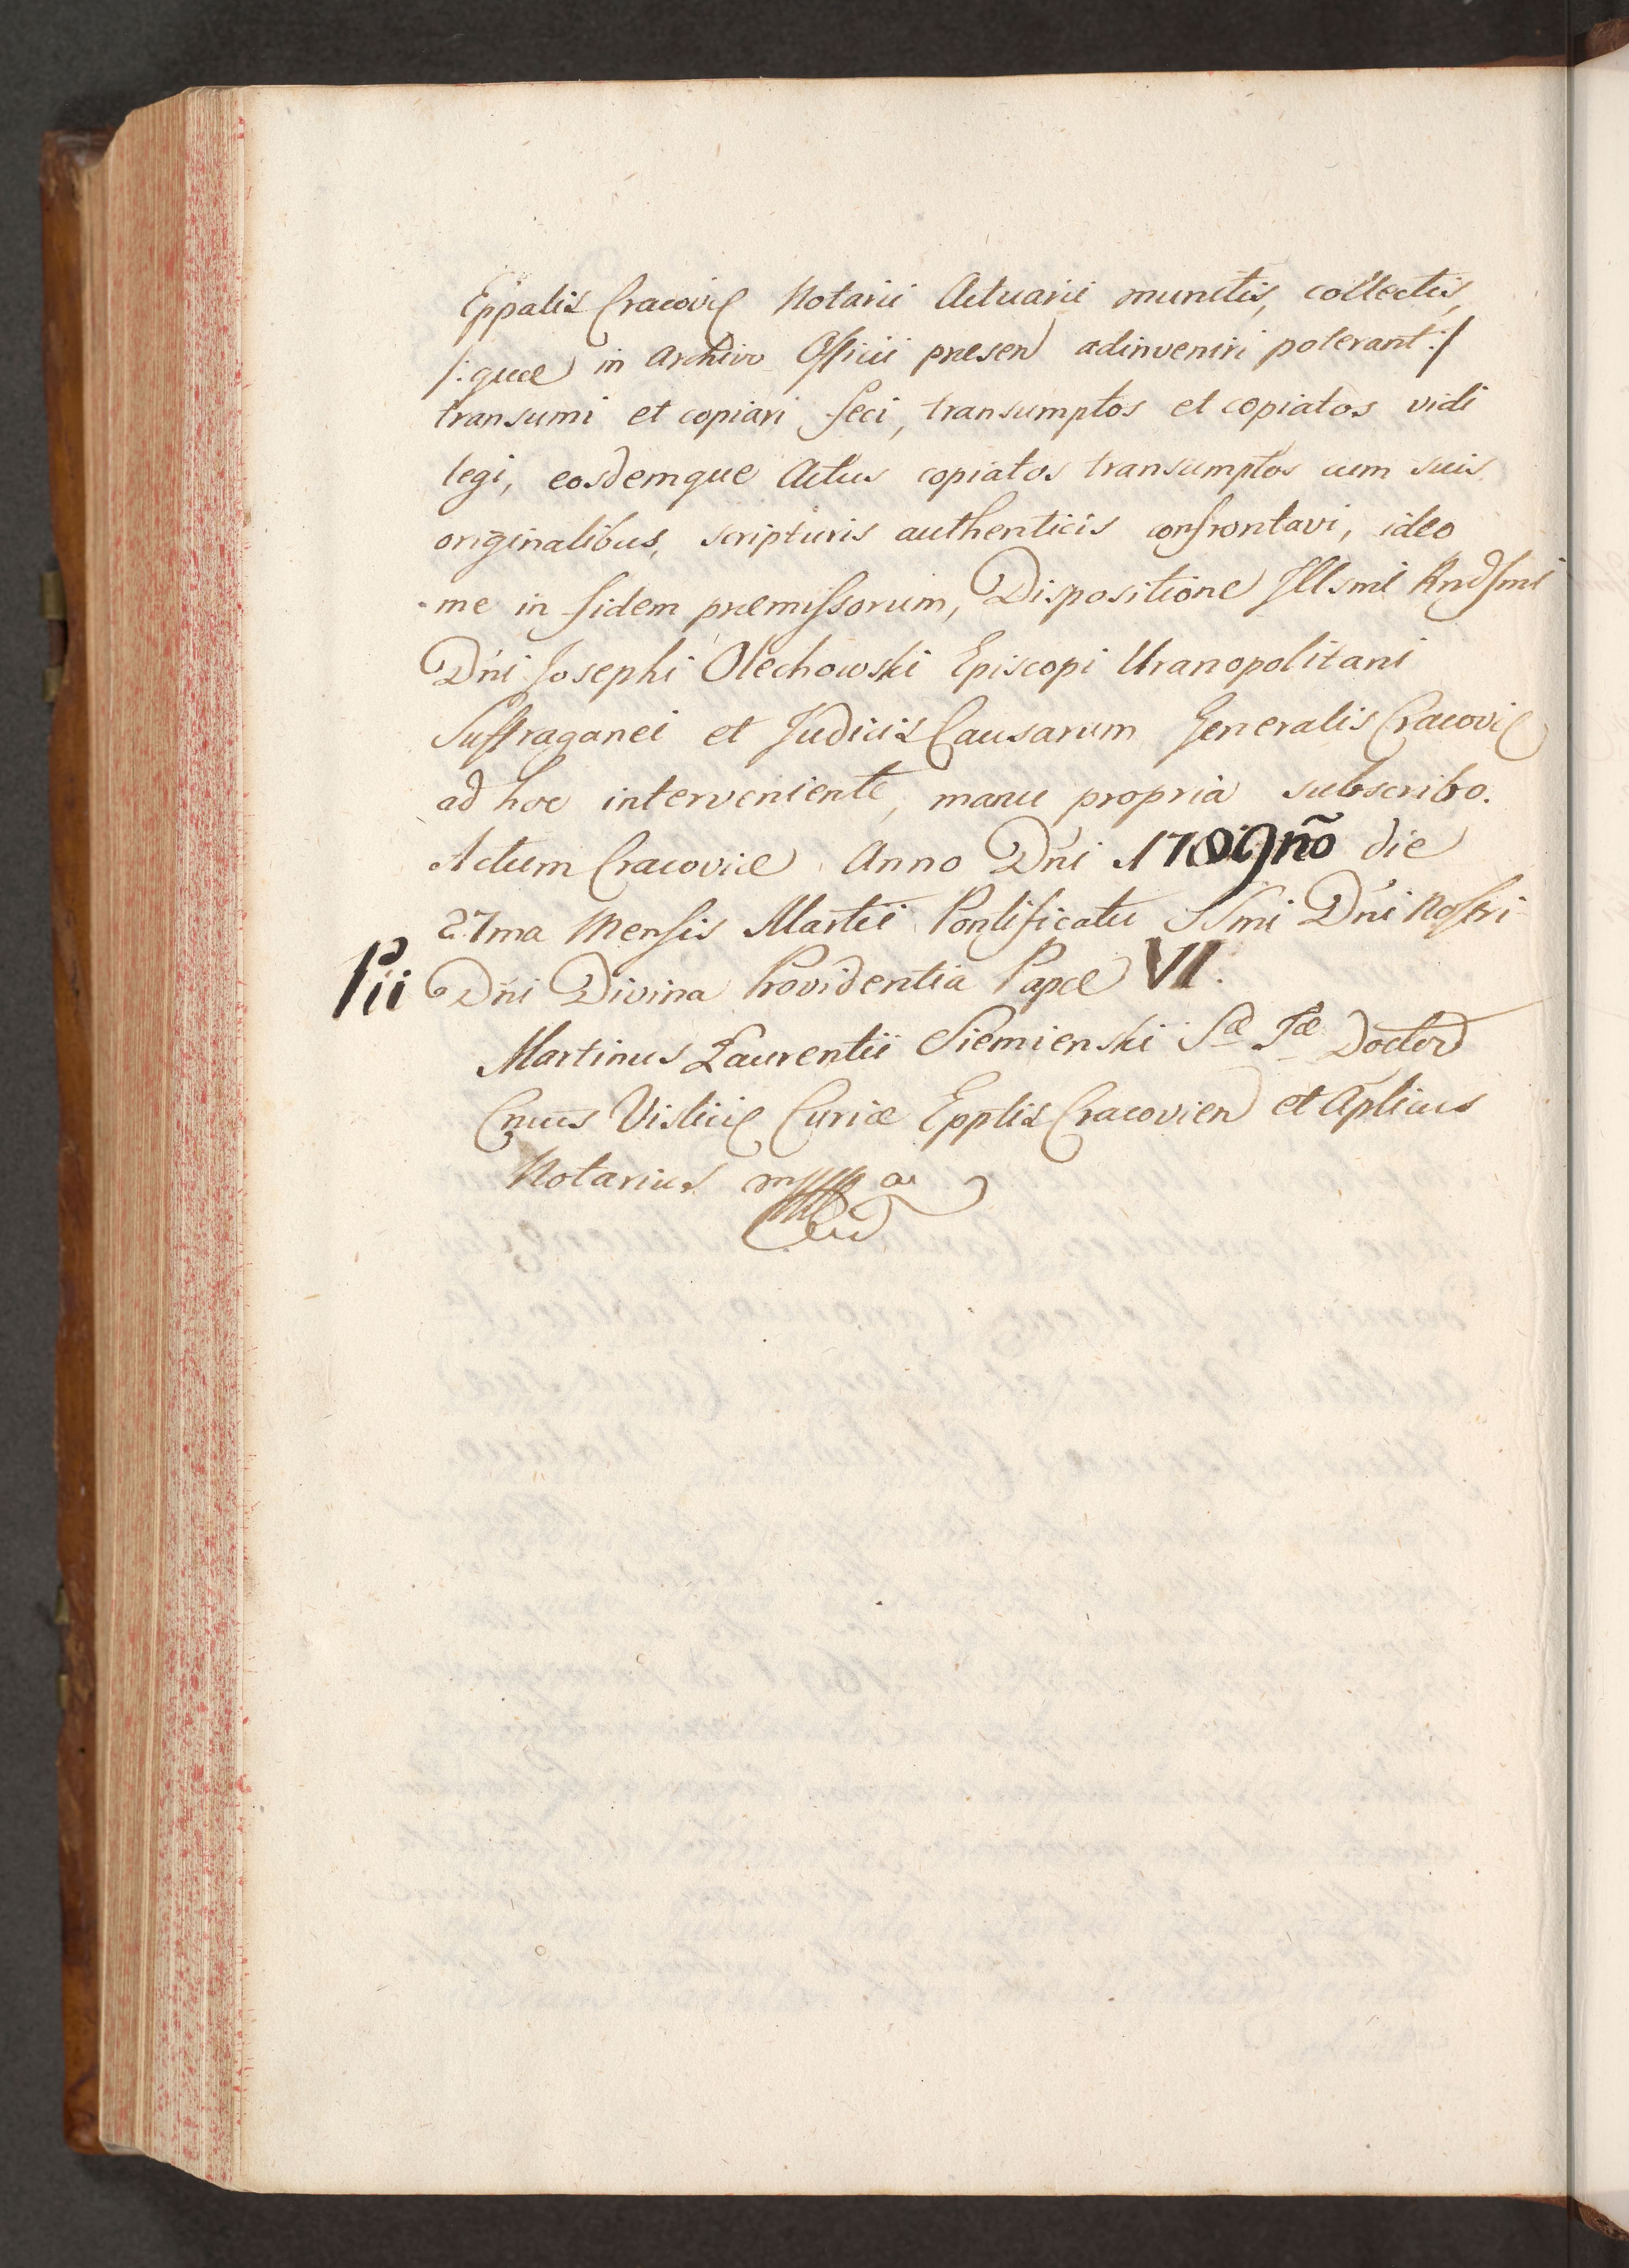 Eppalis Cracovię Notarii Actuarii munitis, collectis,
/: quæ in Archivo Officii præsen adinveniri poterant :/
transumi et copiari feci, transumptos et copiatos vidi
legi, eosdemque Actus copiatos transumptos cum suis
originalibus, scripturis authenticis confrontavi, ideo
me in fidem præmissorum, Dispositione Illsmi Rndsmi
Dni Josephi Olechowski Episcopi Uranopolitani
Suffraganei et Judicis Causarum Generalis Cracovię
ad hoc interveniente, manu propria subscribo.
Actum Cracoviæ Anno Dni 1789nõ die
27ma Mensis Martii Pontificatu SSmi Dni Nostri
Pii Dni Divina Providentia Papæ VI.
Martinus Laurentii Siemienski Sæ Tæ Doctor
Cnicus Vislicię Curiæ Epptis Cracovien et Aplicus
Notarius mppa